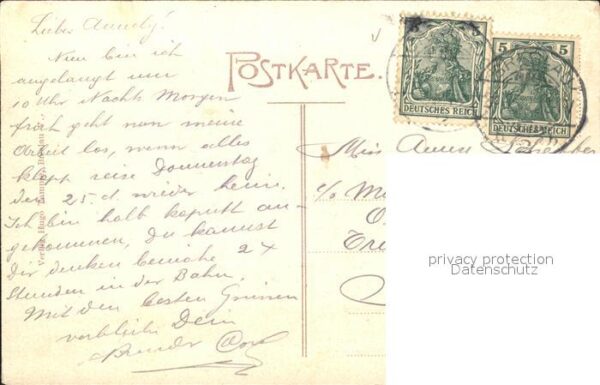 Liebes Annely!
Nun bin ich
angelangt um
10 Uhr Nachts Morgen
früh geht nun meine
Arbeit los, wenn alles
klappt reise Donnerstag
den 25.d. wieder heim.
Ich bin halb kaputt an-
gekommen, Du kannst
Dir denken beinahe 24
Stunden in der Bahn.
Mit den besten Grüssen
verbleibe Dein
Bruder
POSTKARTE.
5 5
DEUTSCHES REICH
5 5
DEUTSCHES REICH
Miss Anna
c/o
Verlag Hugo
privacy protection
Datenschutz